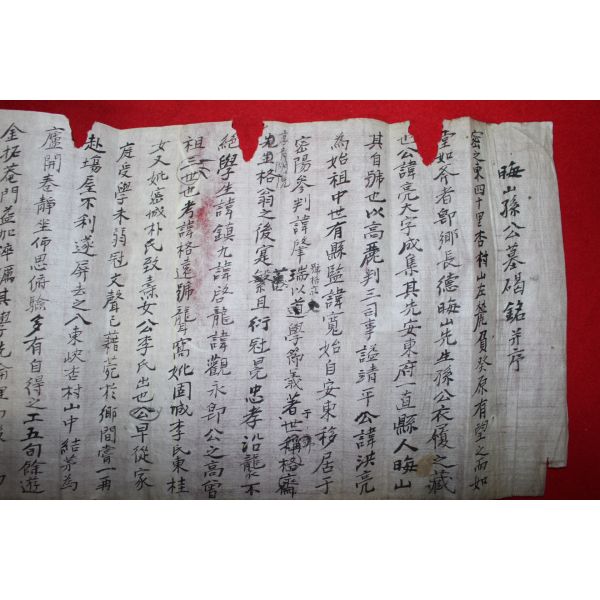 晦山孫公墓碣銘 幷序
密之東四十里杏村山左麓負癸原有望之而如
堂如斧者卽鄕長德晦山先生孫公衣履之藏
也公諱亮大字成集其先安東府一直縣人晦山
其自號也以高麗判三司事謚靖平公諱洪亮
爲始祖中世有縣監諱寬始自安東移居于
密陽參判諱肇瑞以道學節義著世稱格齋
先生格翁之後寔繁且衍冠冕忠孝沿襲不
絶學生諱鎭九諱啓龍諱觀永卽公之高曾
祖三世也考諱格遠號聾窩妣固城李氏東桂
女又妣密城朴氏致燾女公李氏出也公早從家
庭受學未弱冠文聲已藉菀於鄕間嘗一再
赴場屋不利遂屏去之入東峽杏村山中結茅爲
廬開卷靜坐俯思仰驗多有自得之工五旬餘遊
金拓菴門益加淬厲其學